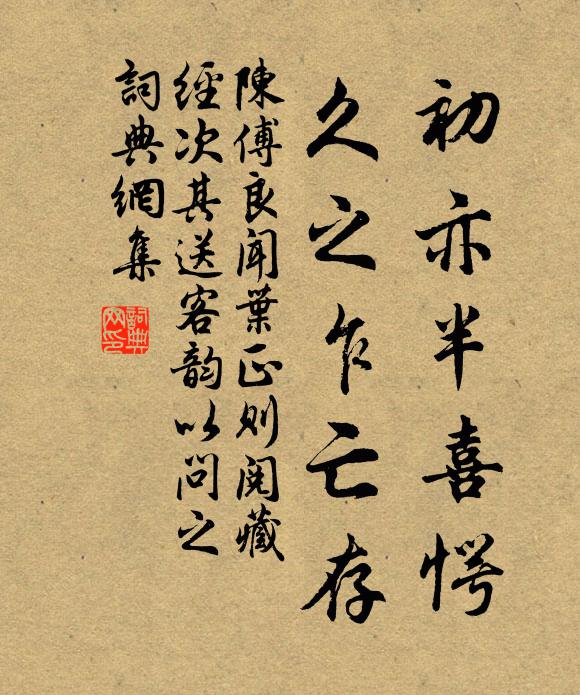 初亦半喜愕
久之乍亡存
陳傅良聞葉正則閱藏
經次其送客韵以問之
詞典網集
詞典
网印